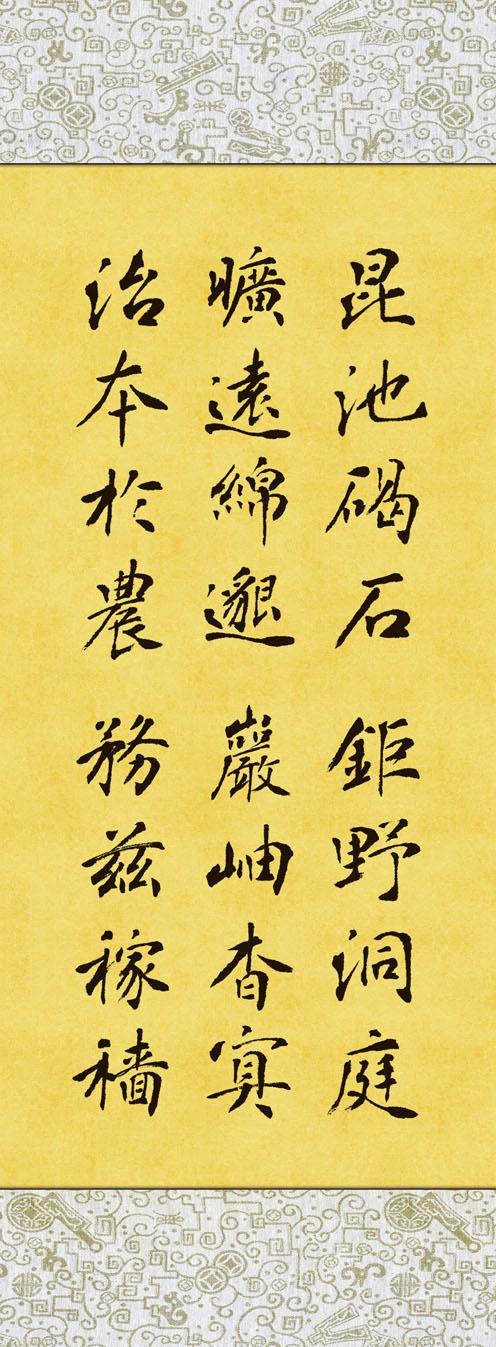 昆池碣石 鉅野洞庭
曠遠綿邈 巖岫杳冥
治本於農 務茲稼穡